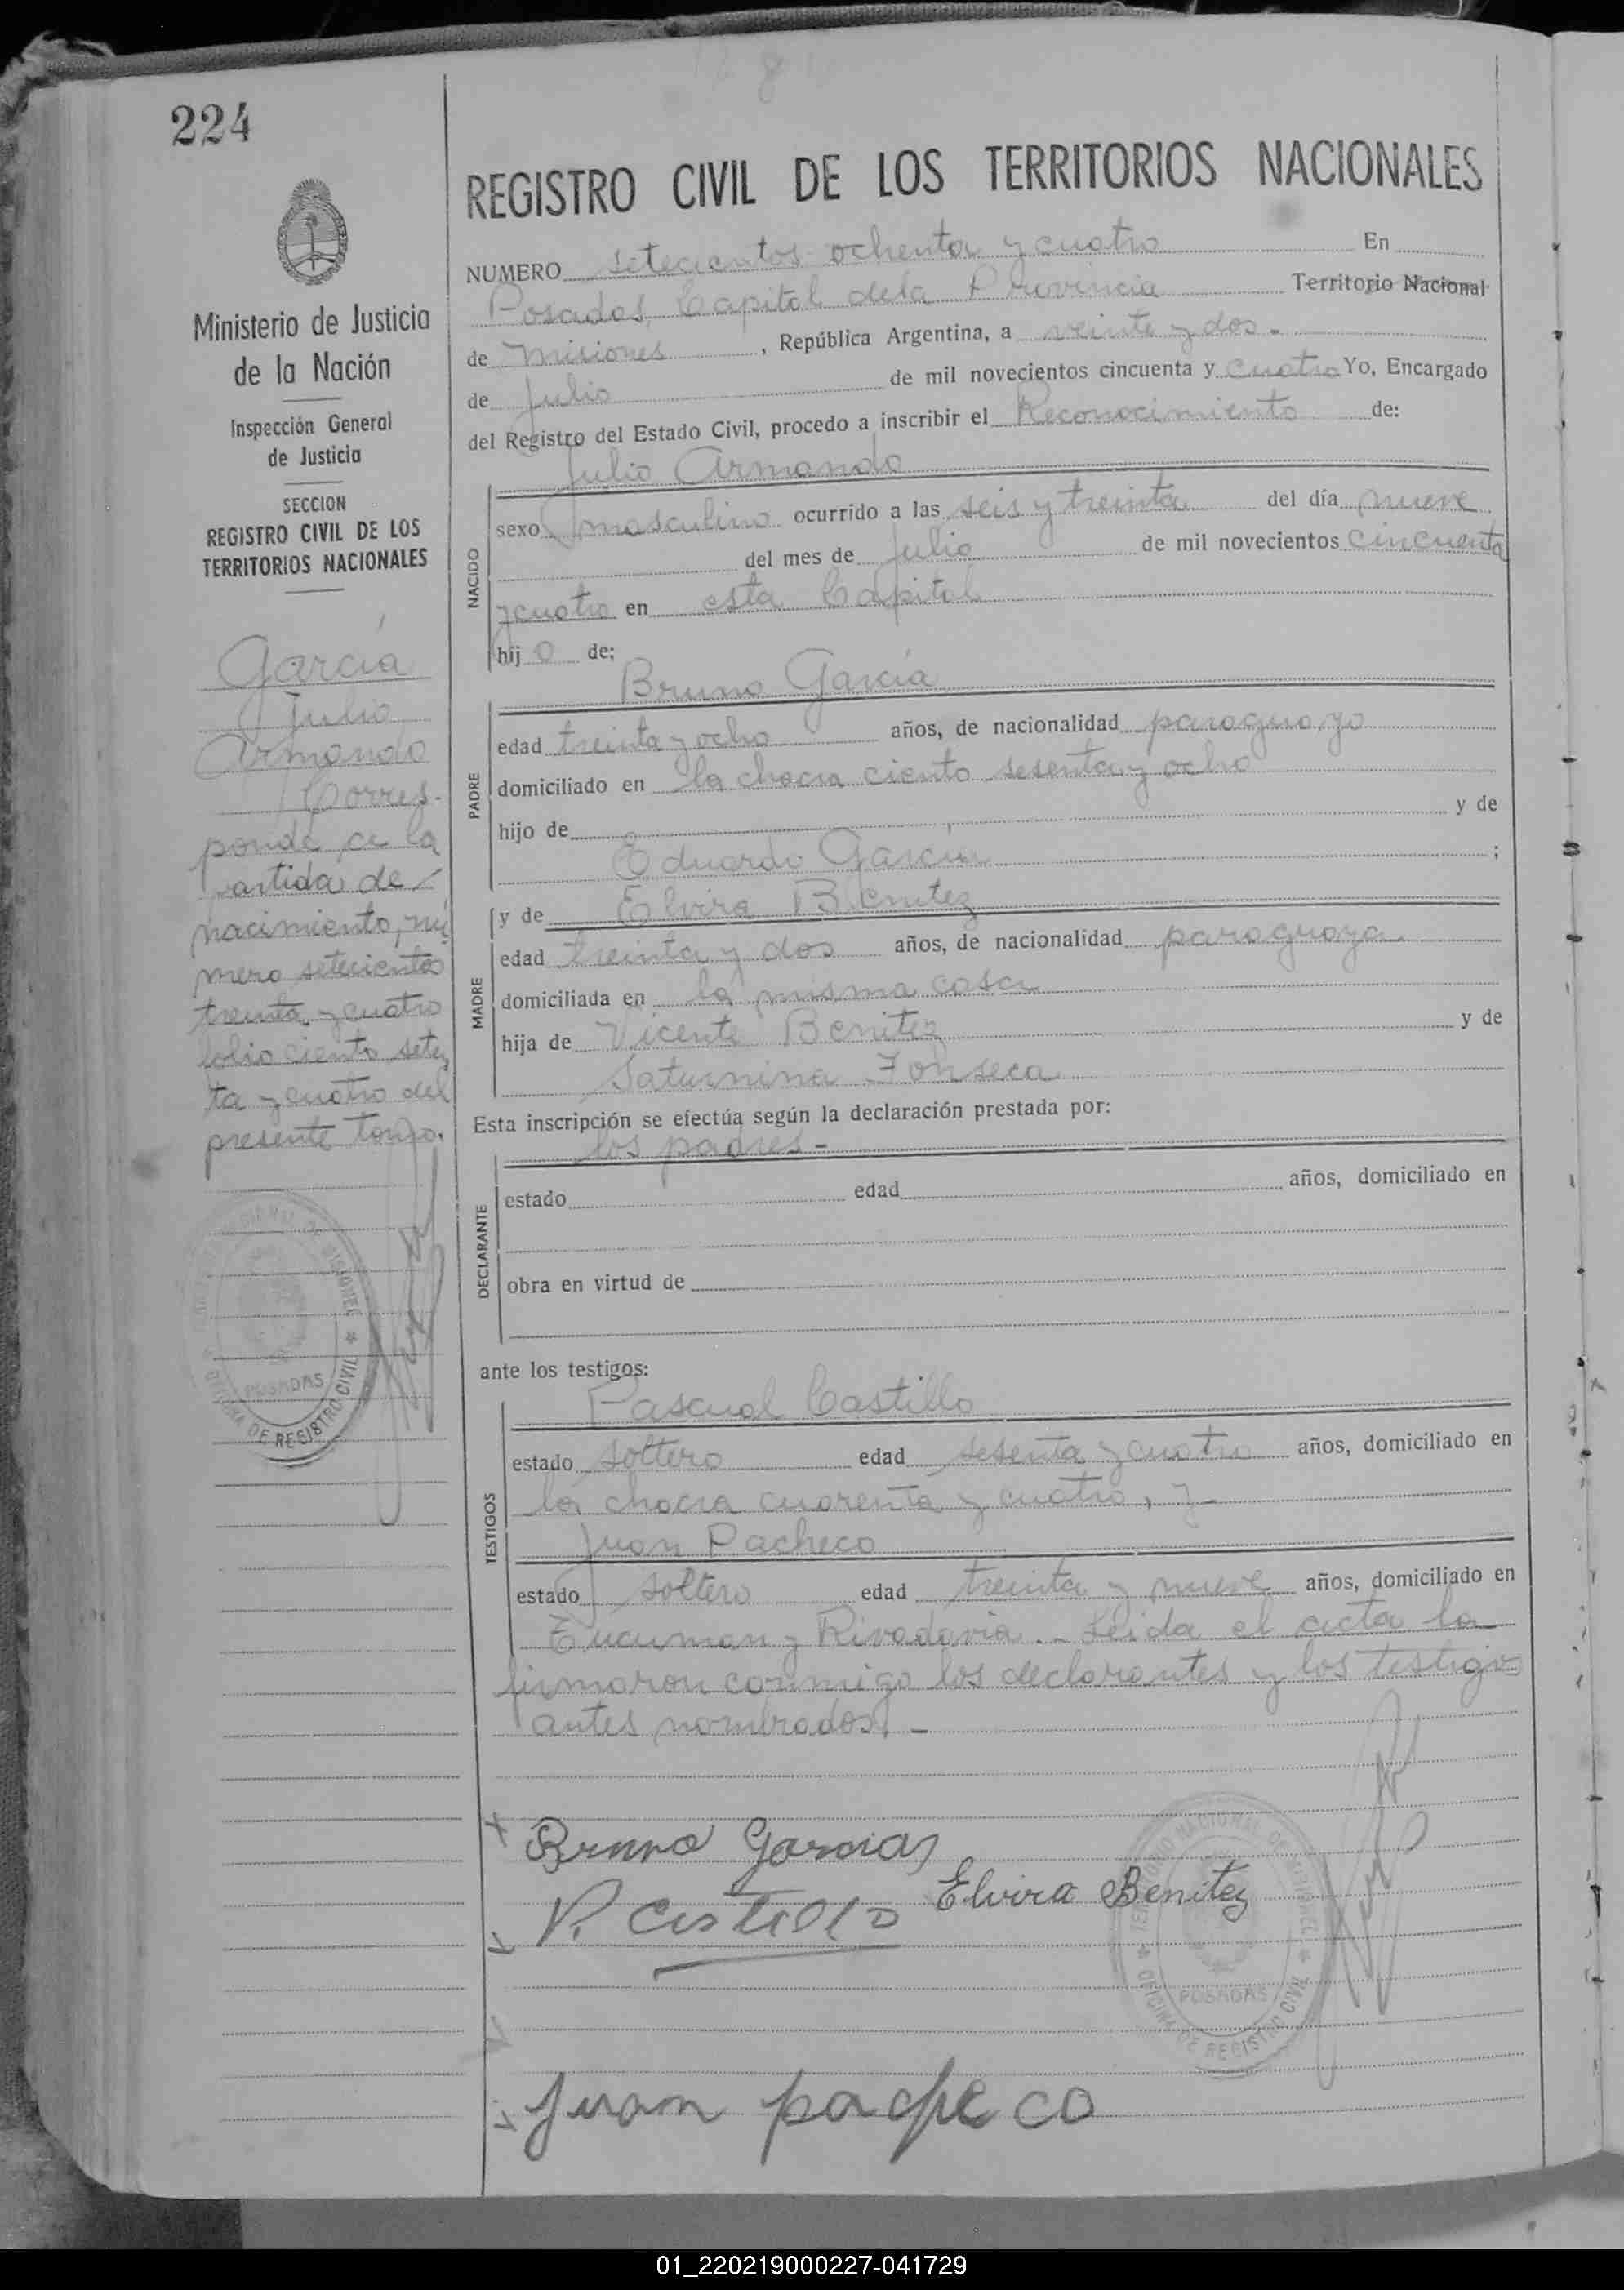 224
Ministerio de Justicia
de la Nación
Inspección General
de Justicia
SECCION
REGISTRO CIVIL DE LOS
TERRITORIOS NACIONALES
García
Julio
Armando
Corres-
ponde a la
partida de
nacimiento, nú
mero setecientos
treinta y cuatro
folio ciento seten
ta y cuatro del
presente tomo.
POSADAS
OFICINA DE REGISTRO CIVIL
REGISTRO CIVIL DE LOS TERRITORIOS NACIONALES
NUMERO setecientos ochenta y cuatro En
Posadas, Capital de la Provincia Territorio Nacional
de Misiones, República Argentina, a veinte y dos.
de Julio de mil novecientos cincuenta y cuatro Yo, Encargado
del Registro del Estado Civil, procedo a inscribir el Reconocimiento de:
Julio Armando
NACIDO
sexo masculino ocurrido a las seis y treinta del día nueve
del mes de Julio de mil novecientos cincuenta
y cuatro en esta Capital
hijo de:
Bruno García
PADRE
edad treinta y ocho años, de nacionalidad paraguayo
domiciliado en la chacra ciento sesenta y ocho
hijo de y de
Eduardo García ;
y de Elvira Benitez
MADRE
edad treinta y dos años, de nacionalidad paraguaya
domiciliada en la misma casa
hija de Vicente Benitez y de
Saturnina Fonseca
Esta inscripción se efectúa según la declaración prestada por:
los padres -
DECLARANTE
estado edad años, domiciliado en
obra en virtud de
ante los testigos:
Pascual Castillo
TESTIGOS
estado soltero edad sesenta y cuatro años, domiciliado en
la chacra cuarenta y cuatro, y -
Juan Pacheco
estado soltero edad treinta y nueve años, domiciliado en
Tucuman y Rivadavia. - Leida el acta la
firmaron conmigo los declarantes y los testigos
antes nombrados. -
Bruno Garcia
Elvira Benitez
P. Castillo
TERRITORIO NACIONAL DE MISIONES
POSADAS
OFICINA DE REGISTRO CIVIL
Juan pacheco
01_220219000227-041729